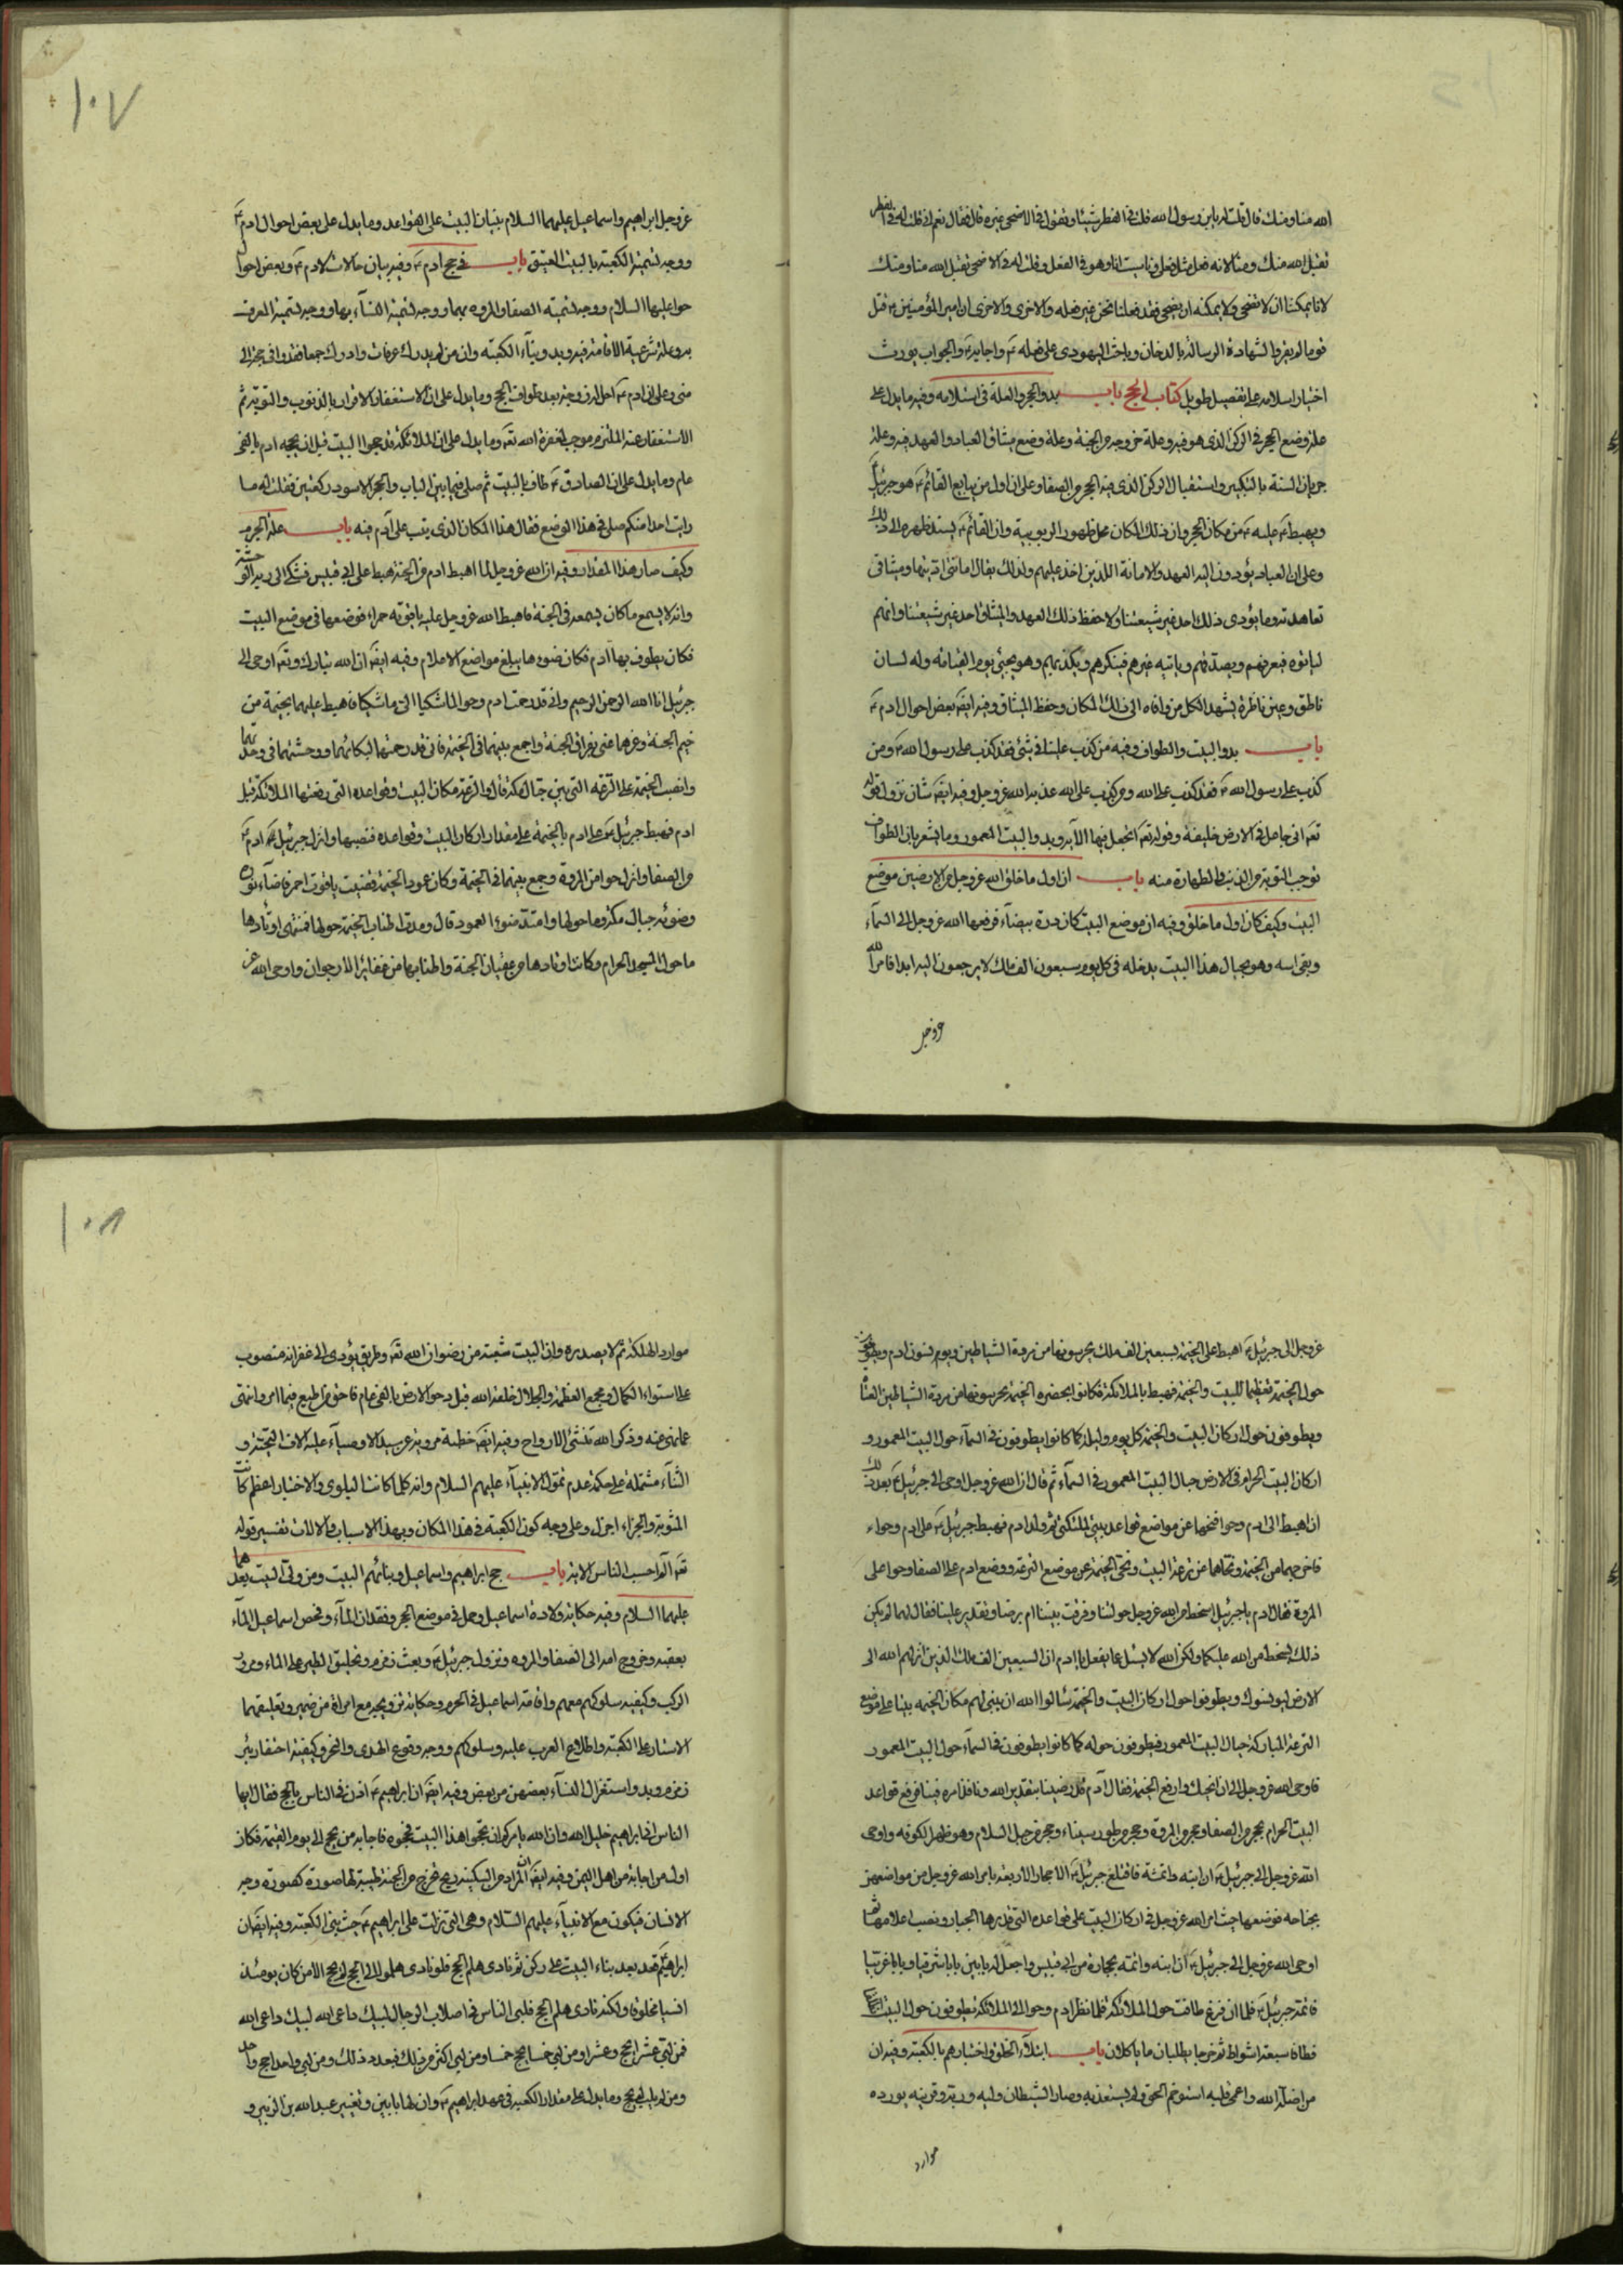 الله منا ومنك قال قلت له يابن رسول الله قلت فى الفطر شيئا وتقول فى الاضحى غيره قال فقال نعم انى قلت له فى الفطر
تقبل الله منك ومنا لانه فعل مثل فعلى وناسبت انا وهو فى الفعل وقلت له فى الاضحى تقبل الله منا ومنك
لانا يمكننا ان لا نضحى ولا يمكنه ان يضحى فقد فعلنا نحن غير فعله والاخرى والاخرى ان امير المؤمنين ع قتل
قوما لم يقروا لشهادة الرسالة بالدخان وباحث اليهودى على فعله ع واجابه ع والجواب يورث
اختيار اسلامه على تفصيل طويل كتاب الحج باب بدو الحجر والعلة فى استلامه وفيه ما يدل على
علة وضع الحجر فى الركن الذى هو فيه وعلة خروجه من الجنة وعلة وضع ميثاق العباد والعهد فيه وعلة
جريان السنة بالتكبير واستقبال الركن الذى فيه الحجر من الصفا وعلى ان اول من يبايع القائم ع هو جبرئيل
ويهبط ع عليه ع من مكان الحجر وان ذلك المكان محل ظهور الربوبية وان القائم ع يسند ظهره الى ذلك
وعلى ان العباد يؤدون اليه العهد والامانة اللذين اخذ عليهم ولذلك يقال امانتى اديتها وميثاقى
تعاهدته وما يؤدى ذلك احد غير شيعتنا ولا حفظ ذلك العهد والميثاق احد غير شيعتنا وانهم
لياتوه فيعرفهم ويصدقهم وياتيه غيرهم فينكرهم ويكذبهم وهو يجئ يوم القيامة وله لسان
ناطق وعين ناظرة يشهد لكل من وافاه الى ذلك المكان وحفظ الميثاق وفيه ايضا بعض احوال ادم ع
باب بدو البيت والطواف وفيه من كذب علينا فى شئ فقد كذب على رسول الله ص ومن
كذب على رسول الله ص فقد كذب على الله ومن كذب على الله عذبه الله عز وجل وفيه ايضا شان نزول قوله
تعه انى جاعل فى الارض خليفة وقوله تعه اتجعل فيها الآية وبدو البيت المعمور وما يشعر بان الطواف
توجب التوبة من الذنب والطهارة منه باب ان اول ما خلق الله عز وجل من الارضين موضع
البيت وكيف كان اول ما خلق وفيه ان موضع البيت كان درة بيضاء فرفعها الله عز وجل الى السماء
وبقى اسه وهو بحيال هذا البيت يدخله فى كل يوم سبعون الف ملك لا يرجعون اليه ابدا فامر الله
عز وجل
١٠٧
عز وجل ابراهيم واسماعيل عليهما السلام ببنيان البيت على القواعد وما يدل على بعض احوال ادم ع
ووجه تسمية الكعبة بالبيت العتيق باب فى حج ادم ع وفيه بيان حالات لادم ع وبعض احوال
حوا عليها السلام ووجه تسمية الصفا والمروه بهما ووجه تسمية النساء بها ووجه تسمية المعرف
به وعلة شرعية الافاضة فيه وبدو بناء الكعبة وان من لم يدرك عرفات وادرك جمعا فقد وافى حجه الى
منى وعلى ان ادم ع احل له زوجته بعد طواف الحج وما يدل على ان الاستغفار الاقرار بالذنوب والتوبة ثم
الاستغفار عند الملتزم موجب لمغفرة الله تعه وما يدل على ان الملائكة قد حجوا البيت قبل ان يحجه ادم بالفى
عام وما يدل على ان الصادق ع طاف بالبيت ثم صلى فيما بين الباب والحجر الاسود ركعتين فقلت له ما
رايت احدا منكم صلى فى هذا الموضع فقال هذا المكان الذى تيب على آدم فيه باب علة الحرم
وكيف صار هذا المقدار وفيه ان الله عز وجل لما اهبط ادم من الجنة هبط على ابى قبيس فشكى الى ربه الوحشة
وانه لا يسمع ما كان يسمعه فى الجنة فاهبط الله عز وجل عليه ياقوتة حمراء فوضعها فى موضع البيت
فكان يطوف بها ادم فكان ضوءها يبلغ مواضع الاعلام وفيه ايضا ان الله تبارك وتعه اوحى الى
جبرئيل انا الله الرحمن الرحيم وانى قد رحمت ادم وحوا لما شكيا الى ما شكيا فاهبط عليهما بخيمة من
خيم الجنة وعزهما عنى بفراق الجنة واجمع بينهما فى الخيمة فانى قد رحمتهما لبكائهما ووحشتهما فى وحدتهما
وانصب الخيمة على الترعة التى بين جبال مكة قال والترعة مكان البيت وقواعده التى رفعتها الملائكة قبل
ادم فهبط جبرئيل ع على ادم بالخيمة على مقدار اركان البيت وقواعده فنصبها وانزل جبرئيل ع ادم ع
من الصفا وانزل حوا من المروة وجمع بينهما فى الخيمة وكان عمود الخيمة قضيب ياقوت احمر فاضاء نوره
وضوئه جبال مكة وما حولها وامتد ضوء العمود قال ومدت اطناب الخيمة حولها فمنتهى اوتادها
ما حول المسجد الحرام وكانت اوتادها من عقيان الجنة واطنابها من ضفائر الارجوان واوحى الله عز
عز وجل الى جبرئيل ع اهبط على الخيمة بسبعين الف ملك يحرسونها من مردة الشياطين ويونسون ادم ويطوفون
حول الخيمة تعظيما للبيت والخيمة فهبط بالملائكة فكانوا بحضرة الخيمة يحرسونها من مردة الشياطين العتاة
ويطوفون حول اركان البيت والخيمة كل يوم وليلة كما كانوا يطوفون فى السماء حول البيت المعمور و
اركان البيت الحرام فى الارض حيال البيت المعمور فى السماء ثم قال ان الله عز وجل اوحى الى جبرئيل ع بعد ذلك
ان اهبط الى ادم وحوا فنحهما عن مواضع قواعد بيتى لملئكتى ثم ولد ادم فهبط جبرئيل ع على ادم وحواء
فاخرجهما من الخيمة ونحاهما عن ترعة البيت ونحى الخيمة عن موضع الترعة ووضع ادم على الصفا وحوا على
المروة فقال ادم يا جبرئيل ابسخط من الله عز وجل حولتنا وفرقت بيننا ام برضا وتقدير علينا فقال لهما لم يكن
ذلك بسخط من الله عليكما ولكن الله لا يسئل عما يفعل يا ادم ان السبعين الف ملك الذين انزلهم الله الى
الارض ليونسوك ويطوفوا حول اركان البيت والخيمة سألوا الله ان يبنى لهم مكان الخيمه بيتا على موضع
الترعة المباركة حيال البيت المعمور فيطوفون حوله كما كانوا يطوفون فى السماء حول البيت المعمور
فاوحى الله عز وجل الى ان انحيك وارفع الخيمة فقال آدم قد رضينا بتقدير الله ونافذ امره فينا فرفع قواعد
البيت الحرام بحجر من الصفا وحجر من المروة وحجر من طور سيناء وحجر من جبل السلام وهو ظهر الكوفه واوحى
الله عز وجل الى جبرئيل ع ان ابنه واتمه فاقتلع جبرئيل ع الاحجار الاربعة بامر الله عز وجل من مواضعهن
بجناحه فوضعها حيث امر الله عز وجل فى اركان البيت على قواعده التى قدرها الجبار ونصب اعلامها ثم
اوحى الله عز وجل الى جبرئيل ع ان ابنه واتمه بحجارة من ابى قبيس واجعل له بابين بابا شرقيا وبابا غربيا
فاتمه جبرئيل ع فلما ان فرغ طافت حوله الملائكة فلما نظر ادم وحوا الى الملائكة يطوفون حول البيت انطلقا
فطافا سبعة اشواط ثم خرجا يطلبان ما ياكلان باب ابتلاء الخلق واختبارهم بالكعبة وفيه ان
من اضله الله واعمى قلبه استوخم الحق ولم يستعذبه وصار الشيطان وليه وربه وقرينه يورده
موارد
١٠٨
موارد الهلكة ثم لا يصدره وان البيت شعبة من رضوان الله تعه وطريق يؤدى الى غفرانه منصوب
على استواء الكمال ومجمع العظمة والجلال خلقه الله قبل دحو الارض بالفى عام فاحق من اطيع فيما امر وانتهى
عما نهى عنه وذكر الله منشئ الارواح وفيه ايضا خطبة مروية عن سيد الاوصياء عليه الاف التحية و
الثناء مشتملة على حكمة عدم تمول الانبياء عليهم السلام وانه كلما كانت البلوى والاختبار اعظم كانت
المثوبة والجزاء اجزل وعلى وجه كون الكعبة فى هذا المكان وبهذا الاسباب والالات تفسير قوله
تعه آلم احسب الناس الاية باب حج ابراهيم واسماعيل وبنائهم البيت ومن ولى البيت بعدهما
عليهما السلام وفيه حكاية ولادة اسماعيل وحمله فى موضع الحجر وفقدان الماء وفحص اسماعيل الماء
بعقبه وخروج امه الى الصفا والمروه ونزول جبرئيل ع وبعث زمزم وتحليق الطير على الماء ومرور
الركب وكيفية سلوكهم معهم واقامة اسماعيل فى الحرم وحكاية تزويجه مع امراة من حمير وتعليقهما
الاستار على الكعبة واطلاع العرب عليه وسلوكهم ووجه وقوع الهدى والنحر وكيفية احتفار بئر
زمزم وبدو استغزال النساء بعضهن من بعض وفيه ايضا ان ابراهيم ع اذن فى الناس بالحج فقال ايها
الناس انى ابراهيم خليل الله وان الله يامركم ان تحجوا هذا البيت فحجوه فاجابه من يحج الى يوم القيمة فكان
اول من اجابه من اهل اليمن وفيه ايضا ان المراد من السكينة ريح تخرج من الجنة طيبة لها صورة كصورة وجه
الانسان فيكون مع الانبياء عليهم السلام وهى التى نزلت على ابراهيم ع حيث بنى الكعبة وفيه ايضا ان
ابراهيم ع قعد بعد بناء البيت على ركن ثم نادى هلم الحج فلو نادى هلموا الى الحج لم يحج الا من كان يومئذ
انسيا مخلوقا ولكنه نادى هلم الحج فلبى الناس فى اصلاب الرجال لبيك داعى الله لبيك داعى الله
فمن لبى عشرا حج عشرا ومن لبى خمسا حج خمسا ومن لبى اكثر من ذلك فبعدد ذلك ومن لبى واحدا حج واحدا
ومن لم يلب لم يحج وما يدل على مقدار الكعبه فى عهد ابراهيم ع وان لها بابين وتغيير عبد الله بن الزبير و